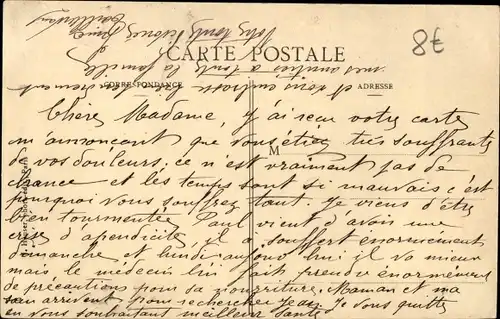 8€
CARTE POSTALE
CORRESPONDANCE
ADRESSE
M
Chère Madame, j'ai reçu votre carte
m'annoncent que vous étiez très souffrante
de vos douleurs, ce n'est vraiment pas de
chance et les temps sont si mauvais c'est
pourquoi vous souffrez tant. Je viens d'être
bien tourmentée Paul vient d'avoir une
crise d'apendicite, il a souffert énormément
dimanche et lundi aujourd'hui il va mieux
mais, le médecin lui fait prendre énormément
de précautions pour sa nourriture. Maman et ma
sœur arrivent pour rechercher Jean. Je vous quitte
en vous souhaitant meilleur santé
et vous embrasse
mes amitiés à toute la famille